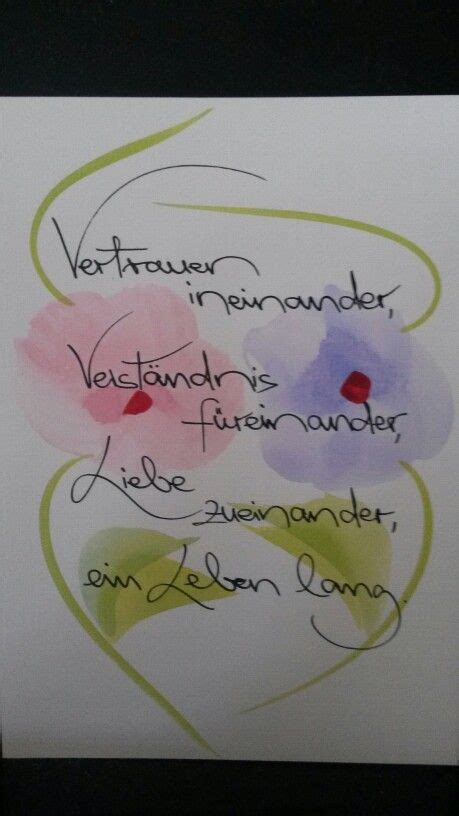 Vertrauen
ineinander,
Verständnis
füreinander,
Liebe
zueinander,
ein Leben lang.